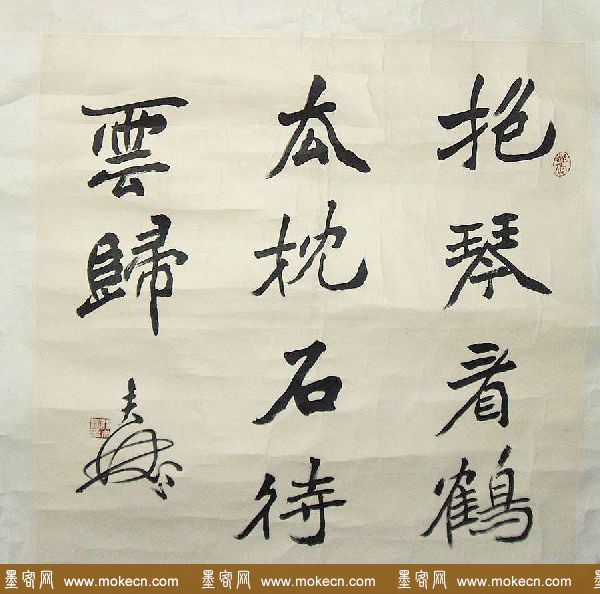 抱琴看鶴
去枕石待
雲歸
墨客网 www.mokecn.com 墨客网 www.mokecn.com 墨客网 www.mokecn.com